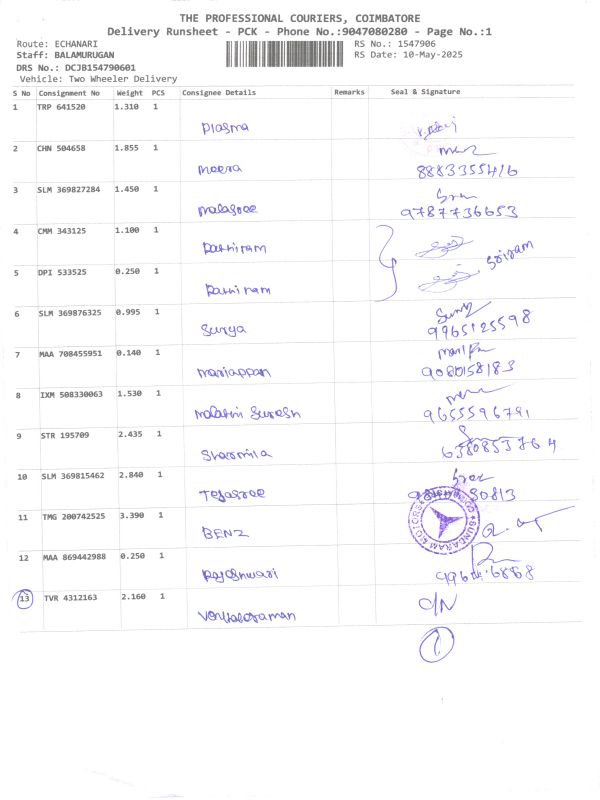 THE PROFESSIONAL COURIERS, COIMBATORE
Delivery Runsheet - PCK - Phone No.:9047080280 - Page No.:1
Route: ECHANARI RS No.: 1547906
Staff: BALAMURUGAN RS Date: 10-May-2025
DRS No.: DCJB154790601
Vehicle: Two Wheeler Delivery
S No Consignment No Weight PCS Consignee Details Remarks Seal & Signature
1 TRP 641520 1.310 1
Plasma
2 CHN 504658 1.855 1
meera 8883355416
3 SLM 369827284 1.450 1
malasree 9787736653
4 CMM 343125 1.100 1
Pathiram
Sriram
5 DPI 533525 0.250 1
Pathiram
6 SLM 369876325 0.995 1
Surya 9965125598
7 MAA 708455951 0.140 1
mariappan 9080158183
8 IXM 508330063 1.530 1
malathi Suresh 9655596791
9 STR 195709 2.435 1
Sharmila 6380853764
10 SLM 369815462 2.840 1
Tejasree
11 TMG 200742525 3.390 1
BENZ
SUNDARAM MOTORS
12 MAA 869442988 0.250 1
Rajeshwari
13 TVR 4312163 2.160 1
C/N
Venkataraman
1